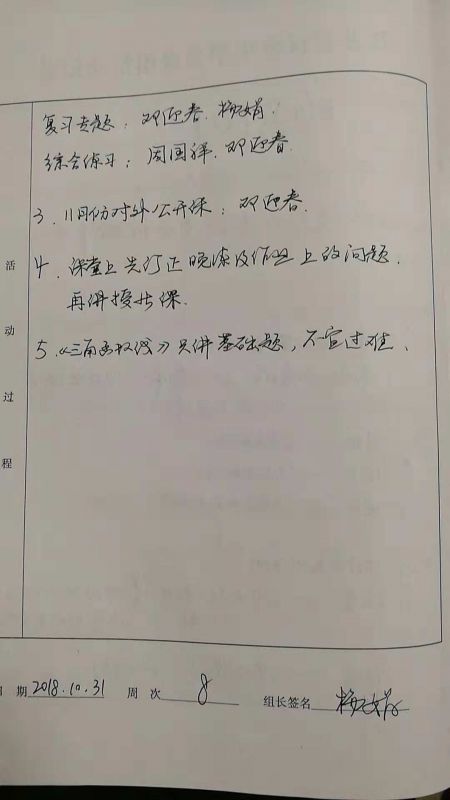 复习专题：邓迎春.杨娟.
综合练习：周国祥.邓迎春.
3.11月份对外公开课：邓迎春.
4.课堂上先订正晚练及作业上的问题.
再讲授新课.
5.《三角函数线》只讲基础题，不宜过难.
活动过程
期 2018.10.31 周次 8 组长签名